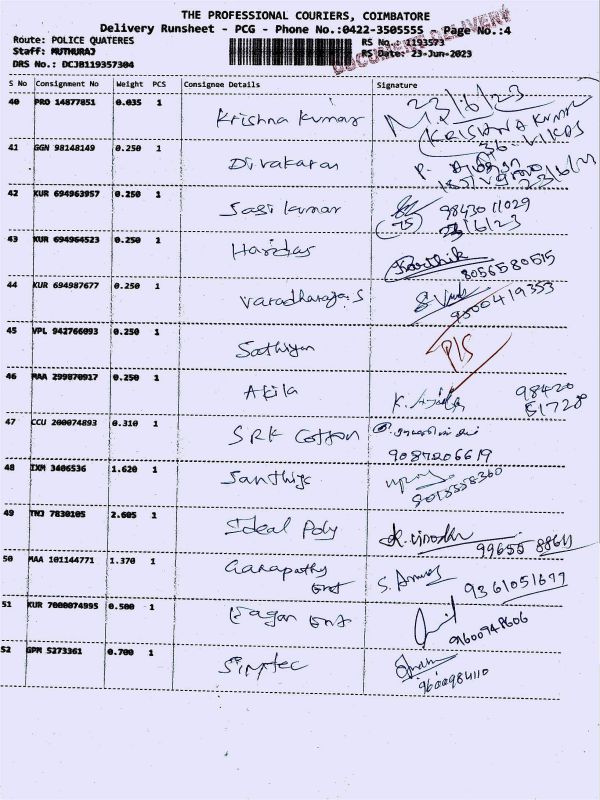 THE PROFESSIONAL COURIERS, COIMBATORE
Delivery Runsheet - PCG - Phone No.:0422-3505555 Page No.:4
Route: POLICE QUATERES RS No.: 1193573
Staff: MUTHURAJ RS Date: 23-Jun-2023
DOCUMENT DELIVERY
DRS No.: DCJB119357304
S No Consignment No Weight PCS Consignee Details Signature
40 PRO 14877851 0.035 1 Krishna Kumar 23/6/23
KRISHNA KUMAR
36
41 GGN 98148149 0.250 1 Divakaran
23/6/23
42 KUR 694963957 0.250 1 Sasi Kumar 9843011029
23/6/23
43 KUR 694964523 0.250 1 Haridas Karthik
8056580515
44 KUR 694987677 0.250 1 Varadharaja.S
9500419353
45 VPL 942766093 0.250 1 Sathiyan P/S
46 MAA 299870917 0.250 1 Akila 98420
51728
47 CCU 200074893 0.310 1 SRK Cotton
9087206619
48 IXM 3406536 1.620 1
49 TNJ 7830105 2.605 1 Ideal Poly
99655 88611
50 MAA 101144771 1.370 1 Ganapathy
Ent 9361051677
51 KUR 7000074995 0.500 1 Ent
9600748606
52 GPM 5273361 0.700 1 Simtec
9600984110